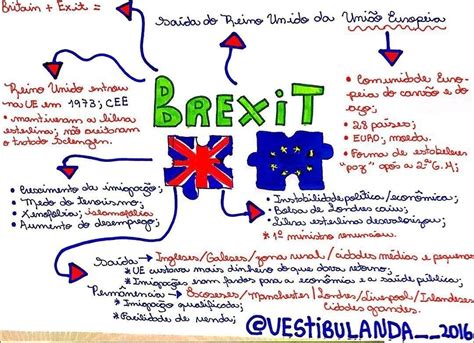 Britain + Exit =
Saída do Reino Unido da União Europeia
Reino Unido entrou
na UE em 1973; CEE
• mantiveram a libra
esterlina; não aceitaram
o tratado Schengen.
BREXIT
• Comunidade Euro-
peia do carvão e do
aço;
• 28 países;
• EURO, moeda.
• Forma de estabelecer
"paz" após a 2ª G.M;
• Crescimento da imigração;
• Medo do terrorismo;
• Xenofobia; Islamofobia
• Aumento do desemprego;
• Instabilidade política/econômica;
• Bolsa de Londres caiu;
• Libra esterlina desvalorizou;
* 1º ministro renunciou.
Saída → Ingleses/Galeses/zona rural/cidades médias e pequenas
* UE custava mais dinheiro do que dava retorno;
* Imigrações eram fardos para a economia e a saúde pública;
Permanência → Escoceses/Manchester/Londres/Liverpool/Irlandeses
cidades grandes.
* Imigração qualificada;
* Facilidade de venda;
@VESTIBULANDA__2016